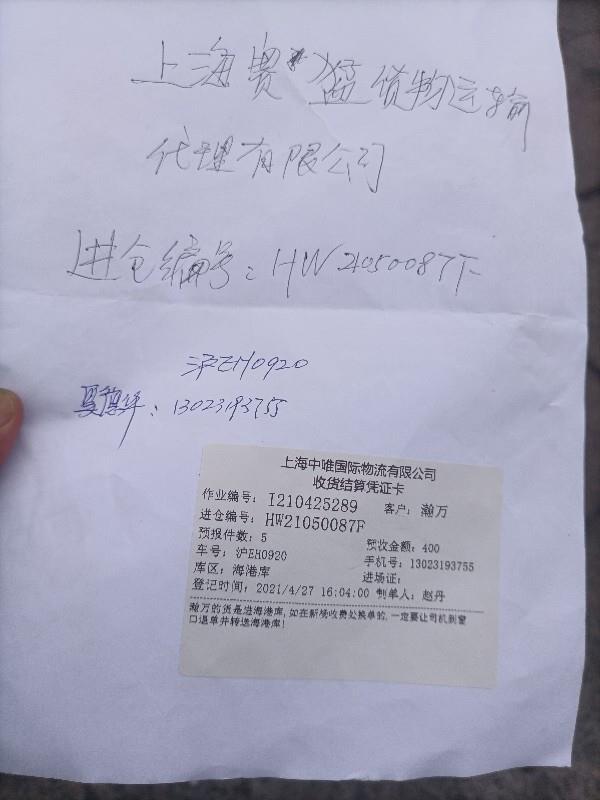 上海赛猛货物运输
代理有限公司
进仓编号：HW21050087F
沪EH0920
夏　华：13023193755
上海中唯国际物流有限公司
收货结算凭证卡
作业编号：I210425289 客户：瀚万
进仓编号：HW21050087F
预报件数：5 预收金额：400
车号：沪EH0920 手机号：13023193755
库区：海港库 进场证：
登记时间：2021/4/27 16:04:00 制单人：赵丹
瀚万的货是进海港库，如在新场收费处换单的，一定要让司机到窗
口退单并转送海港库！